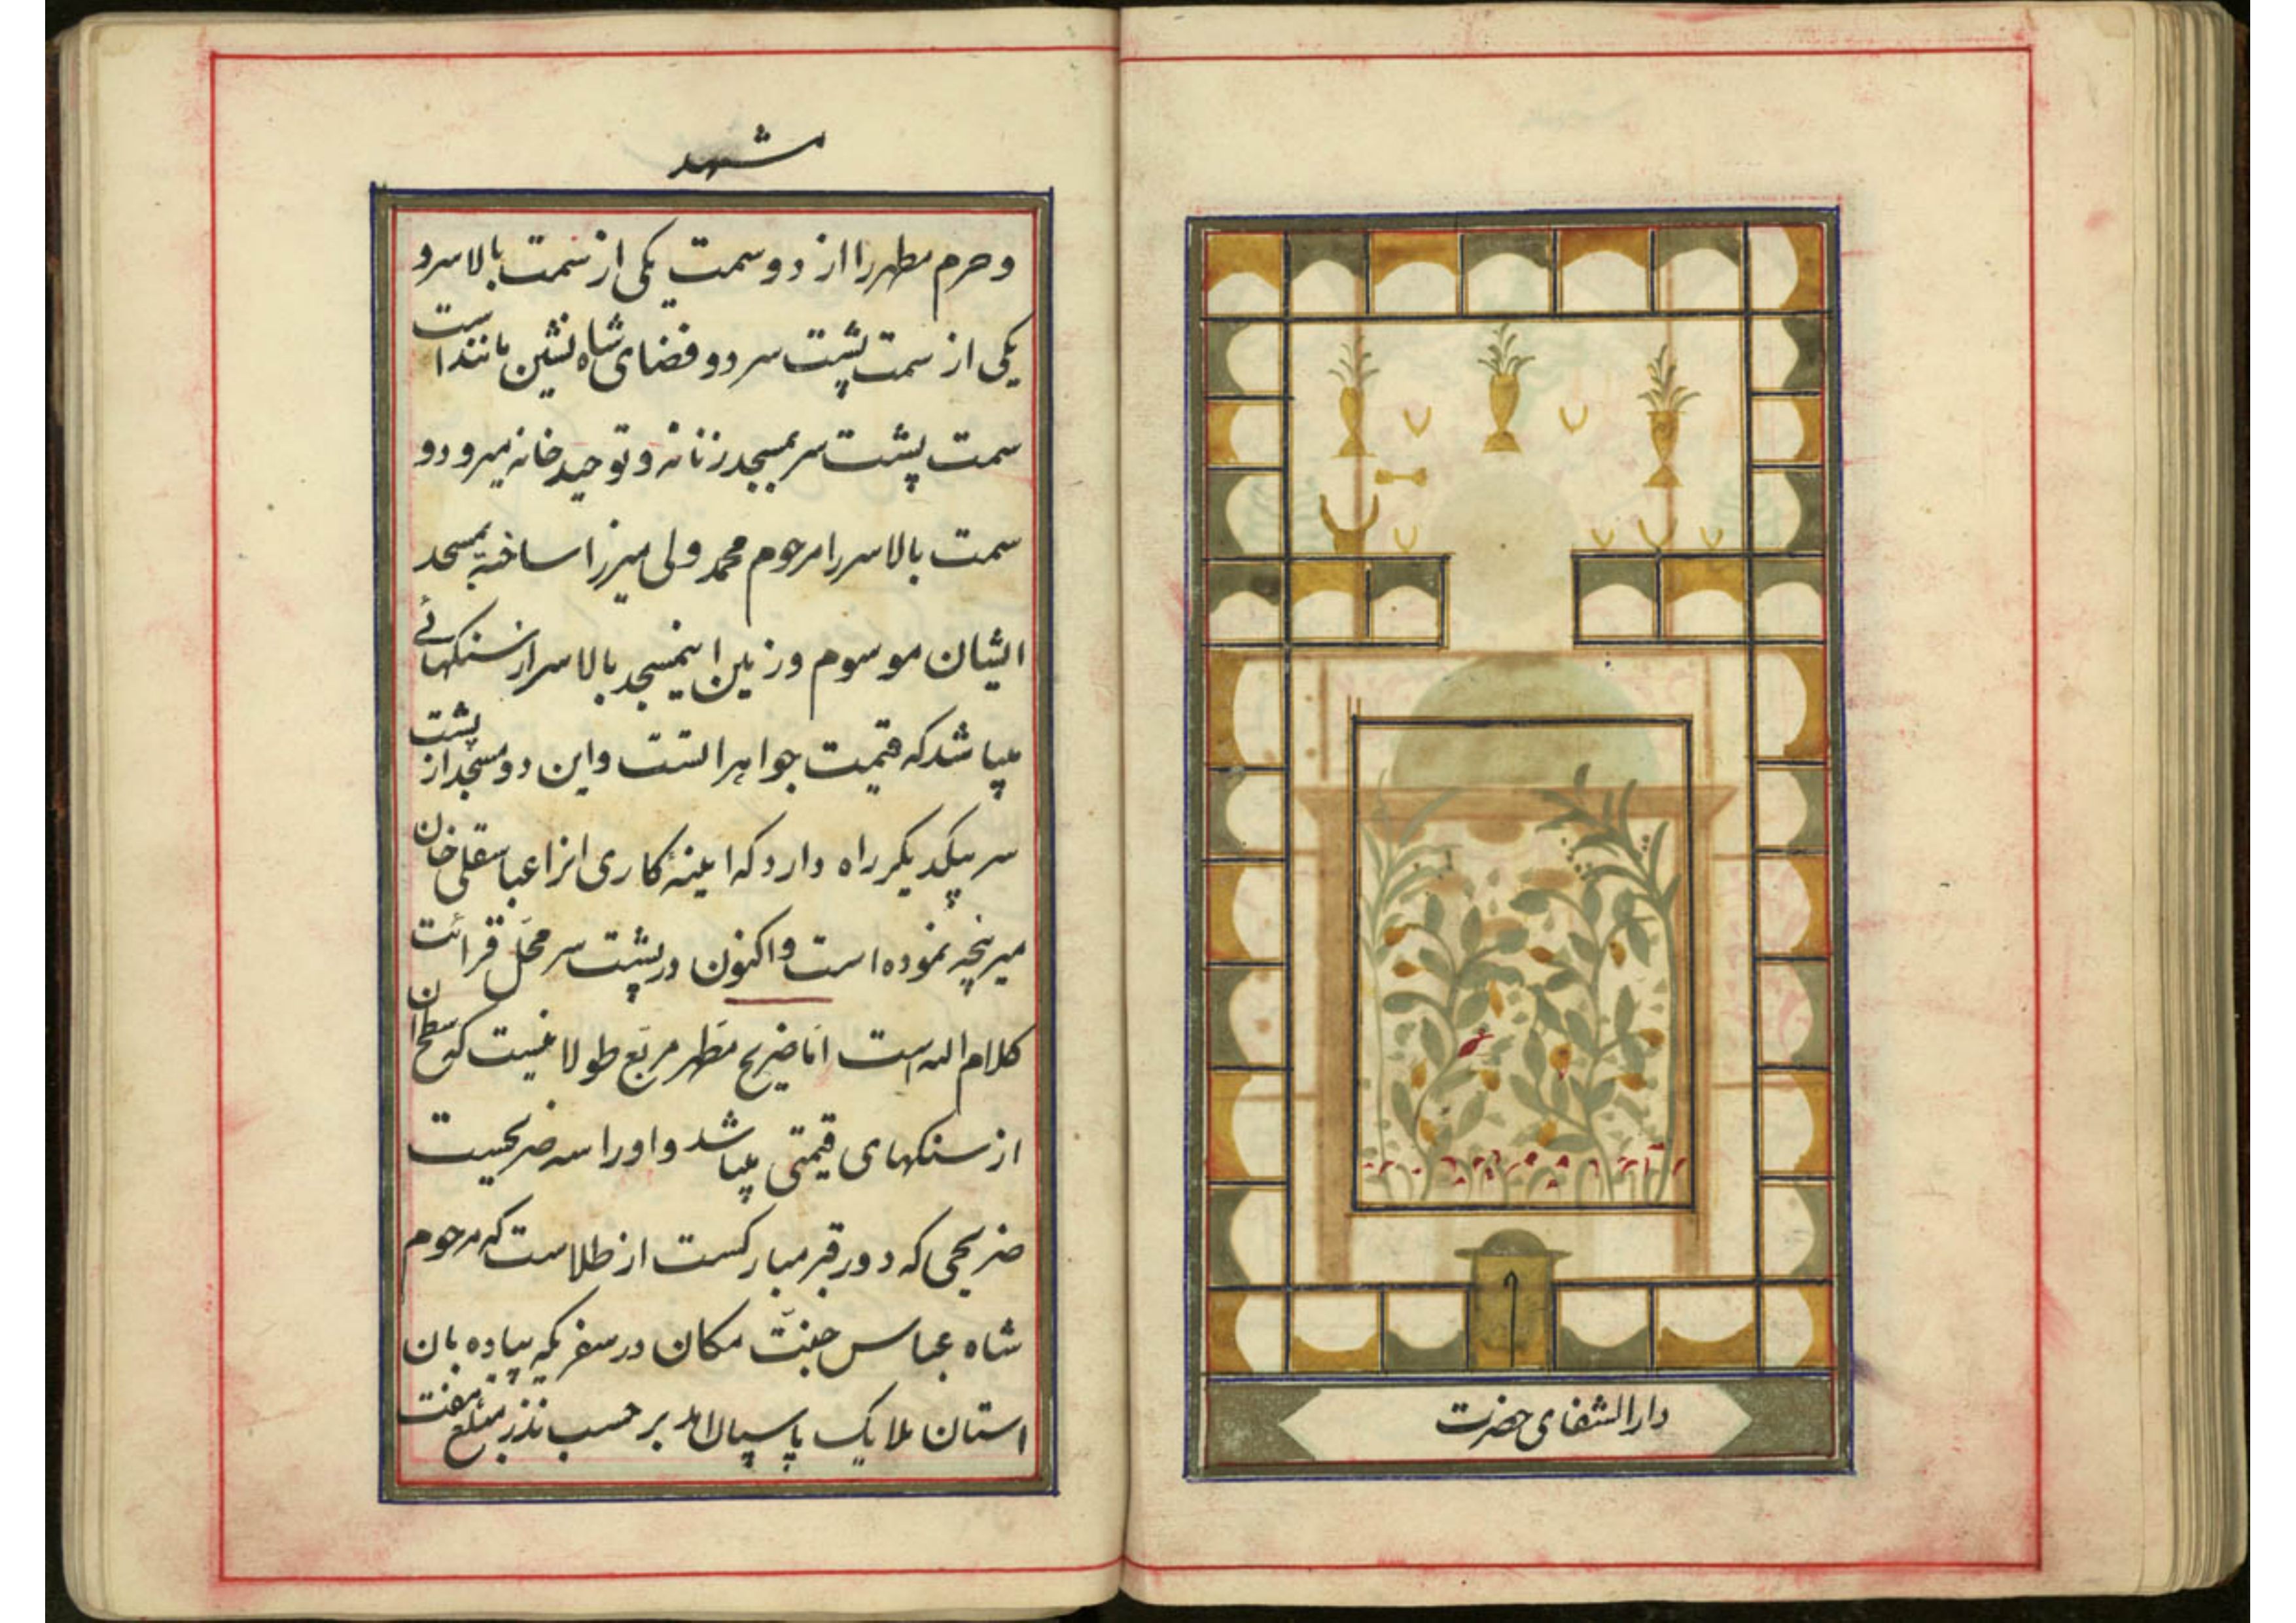 دارالشفای حضرت
مشهد
و حرم مطهر را از دو سمت یکی از سمت بالا سر و
یکی از سمت پشت سر دو فضای شاه نشین مانند است
سمت پشت سر بمسجد زنانه و توحید خانه میرود و
سمت بالا سر را مرحوم محمد ولی میرزا ساخته بمسجد
ایشان موسوم و زمین اینمسجد بالا سر از سنکهائی
میباشد که قیمت جواهر است و این دو مسجد از پشت
سر بیکدیکر راه دارد که اینه کاری انرا عباسقلی خان
میر پنجه نموده است و اکنون در پشت سر محل قرائت
کلام الله است اما ضریح مطهر مربع طولانیست که سطح ان
از سنکهای قیمتی میباشد و او را سه ضریحیست
ضریحی که دور قبر مبارکست از طلاست که مرحوم
شاه عباس جنت مکان در سفریکه پیاده بان
استان ملایک پاسبان امد بر حسب نذر مبلغ هفت